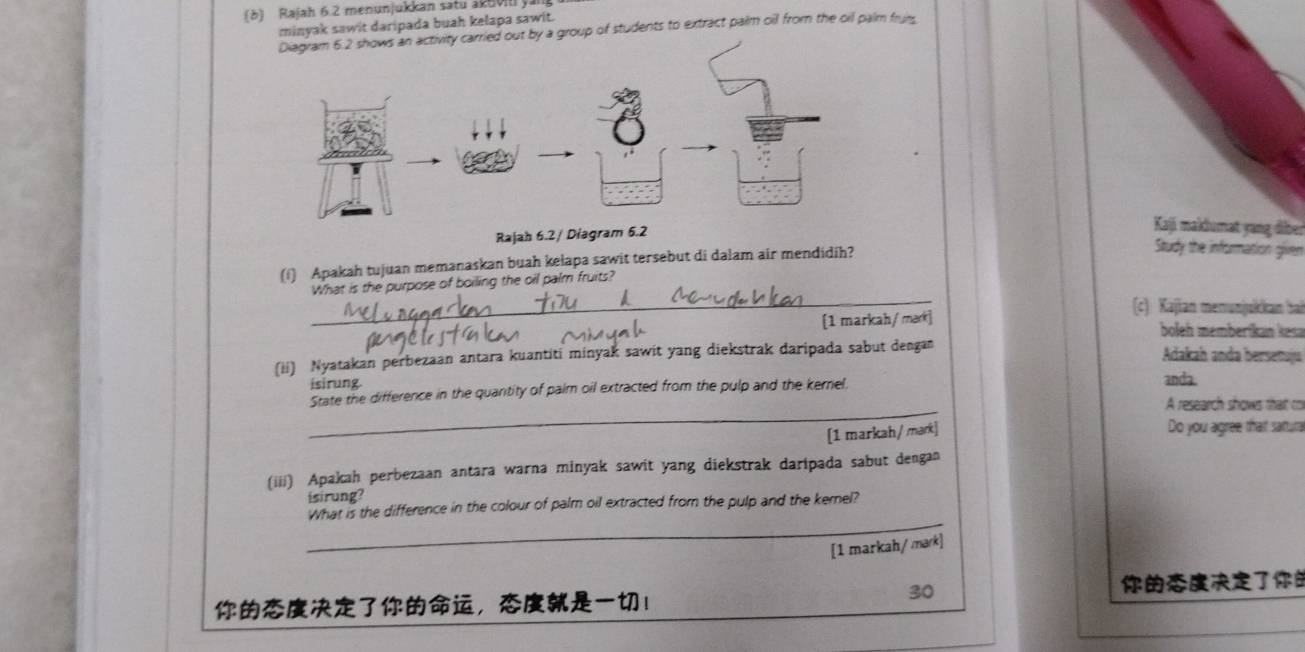 (b) Rajah 6.2 menunjukkan satu aktiviti yang
minyak sawit daripada buah kelapa sawit.
Diagram 6.2 shows an activity carried out by a group of students to extract palm oil from the oil palm fruits.
Rajah 6.2/ Diagram 6.2
(i) Apakah tujuan memanaskan buah kelapa sawit tersebut di dalam air mendidih?
What is the purpose of boiling the oil palm fruits?
Melonggarkan
minyak
[1 markah/ mark]
(ii) Nyatakan perbezaan antara kuantiti minyak sawit yang diekstrak daripada sabut dengan
isirung.
State the difference in the quantity of palm oil extracted from the pulp and the kernel.
[1 markah/ mark]
(iii) Apakah perbezaan antara warna minyak sawit yang diekstrak daripada sabut dengan
isirung?
What is the difference in the colour of palm oil extracted from the pulp and the kernel?
[1 markah/ mark]
你的态度决定了你的命运，态度就是一切！
30
Kaji maklumat yang diber
Study the information given
(c) Kajian menunjukkan bah
boleh memberikan kesa
Adakah anda bersetuju
anda.
A research shows that co
Do you agree that satura
你的态度决定了你的